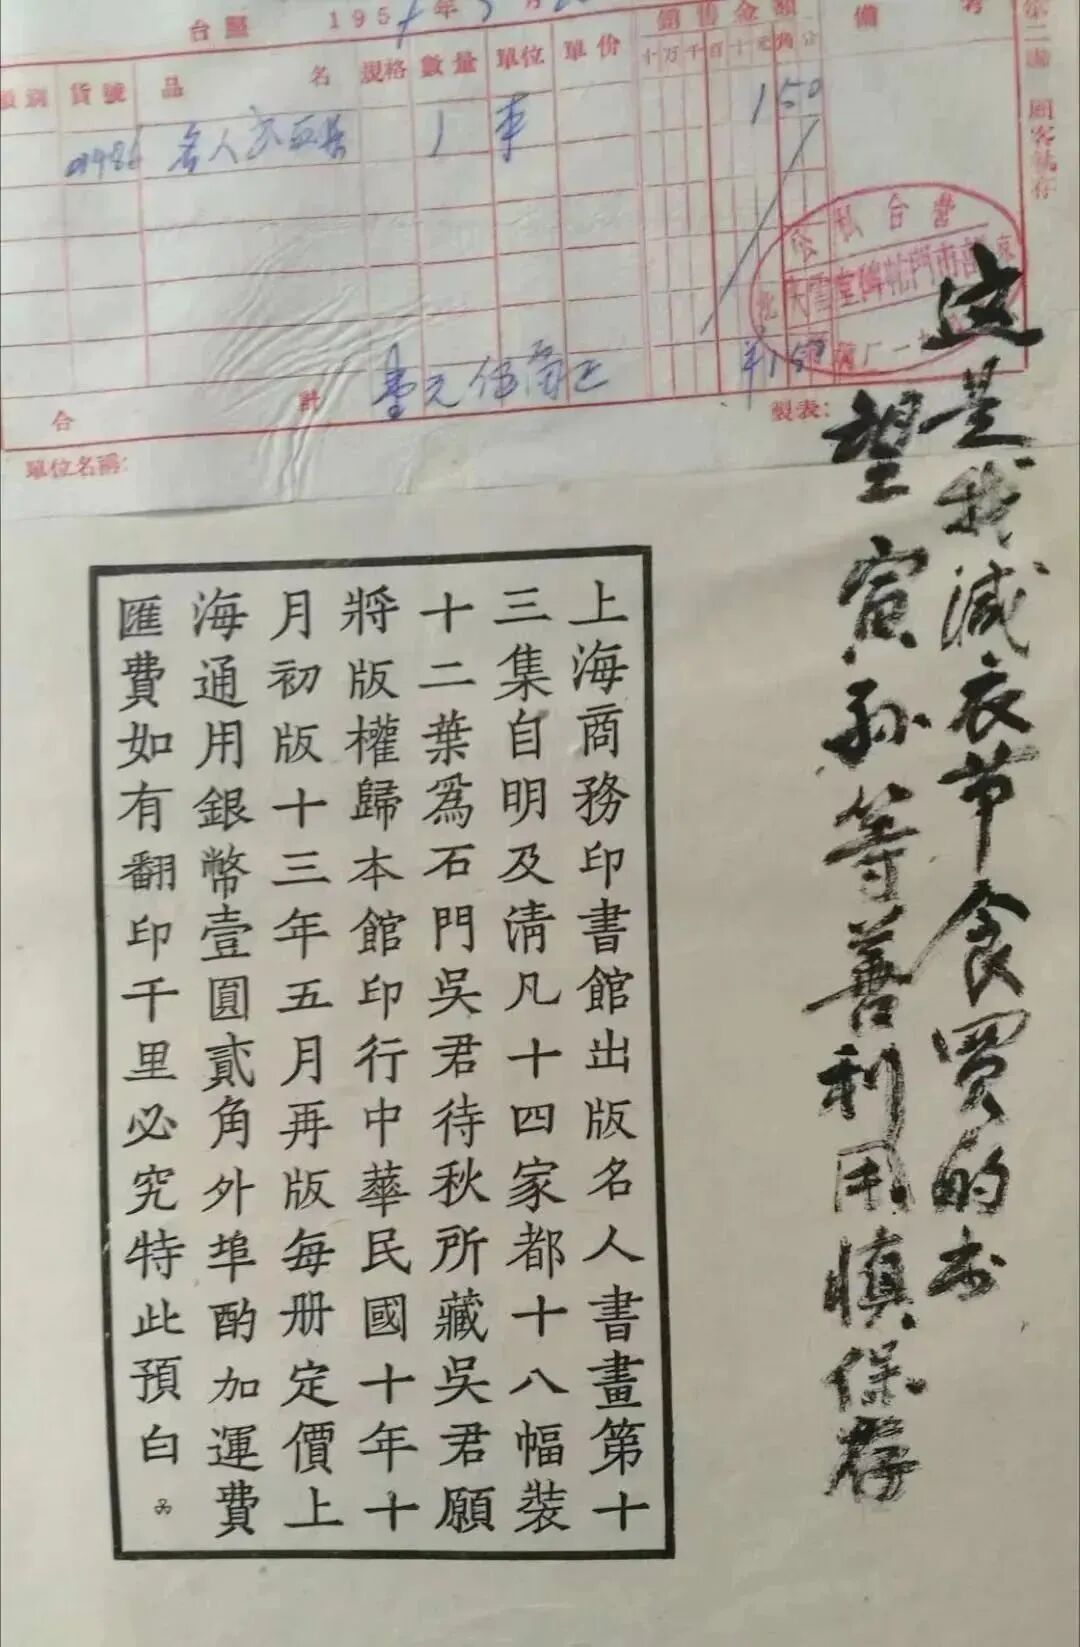 台照 195 年 月
銷售金額
備 考
類別 貨號 品 名 規格 數量 單位 單价 十万千百十元角分
名人 1 150
合 計 壹元伍角正 ¥150
製表:
單位名稱:
第二聯 顧客執存
公私合營
这是我减衣节食买的书
望寅孙等善利用慎保存
上海商務印書館出版名人書畫第十
三集自明及淸凡十四家都十八幅裝
十二葉爲石門吳君待秋所藏吳君願
將版權歸本館印行中華民國十年十
月初版十三年五月再版每册定價上
海通用銀幣壹圓貳角外埠酌加運費
匯費如有翻印千里必究特此預白